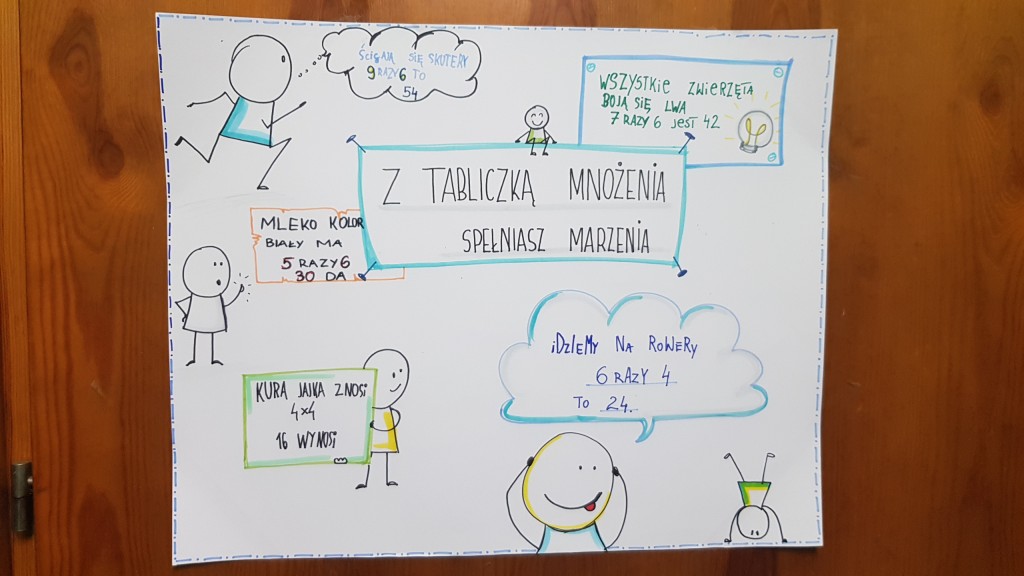 ŚCIGAJĄ SIĘ SKUTERY
9 RAZY 6 TO
54
WSZYSTKIE ZWIERZĘTA
BOJĄ SIĘ LWA
7 RAZY 6 JEST 42
Z TABLICZKĄ MNOŻENIA
SPEŁNIASZ MARZENIA
MLEKO KOLOR
BIAŁY MA
5 RAZY 6
30 DA
KURA JAJKA ZNOSI
4x4
16 WYNOSI
iDZIEMY NA ROWERY
6 RAZY 4
TO 24.